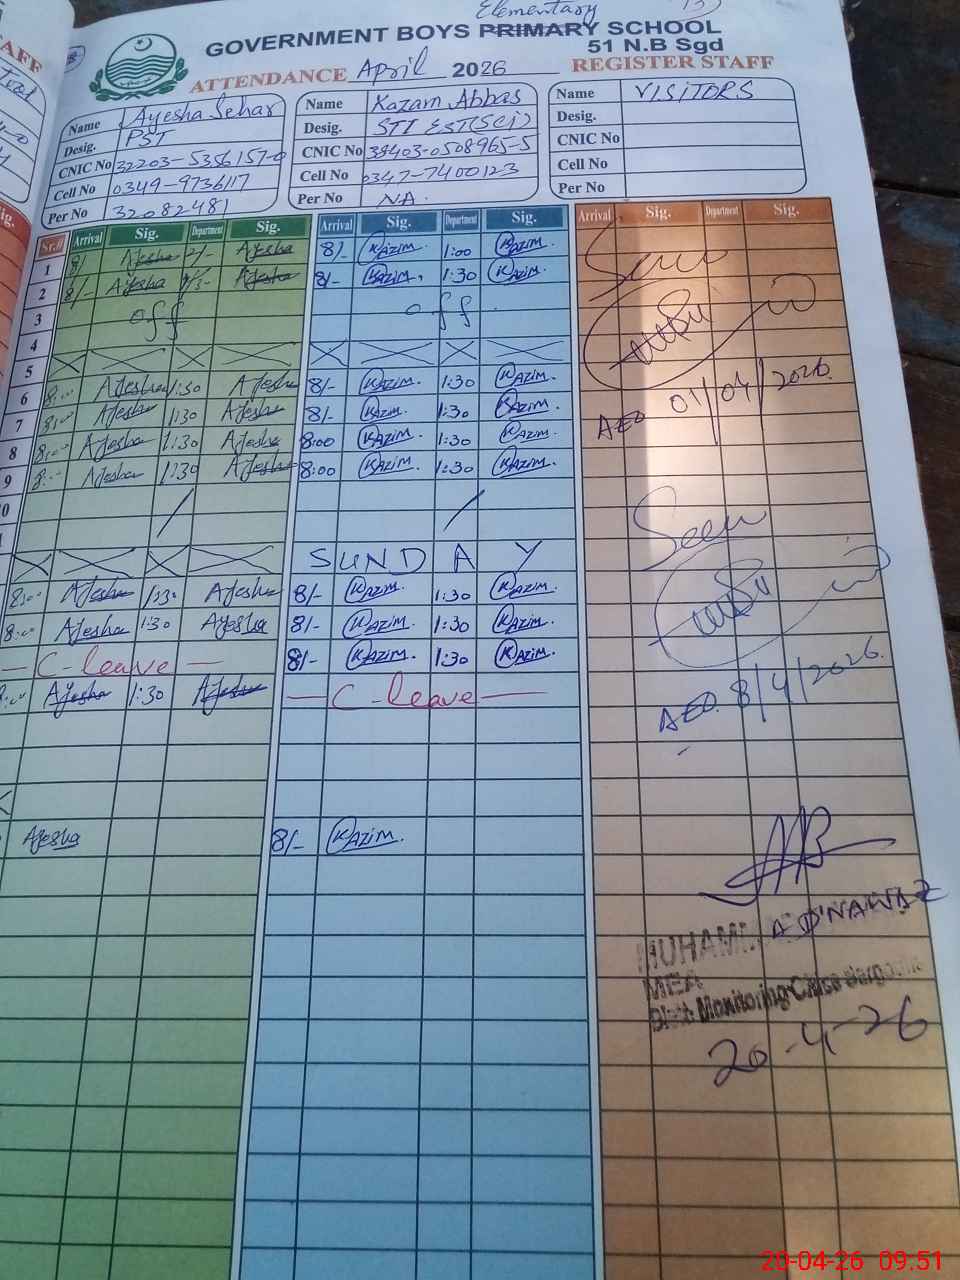 Elementary
GOVERNMENT BOYS PRIMARY SCHOOL
51 N.B Sgd
ATTENDANCE April 2026 REGISTER STAFF
Name Ayesha Sehar
Desig. PST
CNIC No 32203-5356157-0
Cell No 0349-9736117
Per No 32082481
Name Kazam Abbas
Desig. STI EST(Sci)
CNIC No 38403-0508965-5
Cell No 0347-7400123
Per No NA.
Name VISITORS
Desig.
CNIC No
Cell No
Per No
Sr.# Arrival Sig. Department Sig. Arrival Sig. Department Sig. Arrival Sig. Department Sig.
1 8/- Ayesha Ayesha 8/- Kazim. 1:00 Kazim.
2 8/- Ayesha Ayesha 8/- Kazim. 1:30 Kazim.
3 off off
4
5
6 8:00 Ayesha 1:30 Ayesha 8/- Kazim. 1:30 Kazim.
7 8:00 Ayesha 1:30 Ayesha 8/- Kazim. 1:30 Kazim.
8 8:00 Ayesha 1:30 Ayesha 8:00 Kazim. 1:30 Kazim.
9 8:00 Ayesha 1:30 Ayesha 8:00 Kazim. 1:30 Kazim.
SUNDAY
8:00 Ayesha 1:30 Ayesha 8/- Kazim. 1:30 Kazim.
8:00 Ayesha 1:30 Ayesha 8/- Kazim. 1:30 Kazim.
— C-leave — 8/- Kazim. 1:30 Kazim.
8:00 Ayesha 1:30 Ayesha — C-leave —
Ayesha 8/- Kazim.
Seen
AEO 01/04/2026
Seen
AEO 8/4/2026.
MUHAMMAD NAWAZ
MEA
Distt Monitoring Office Sargodha
20-4-26
20-04-26 09.51